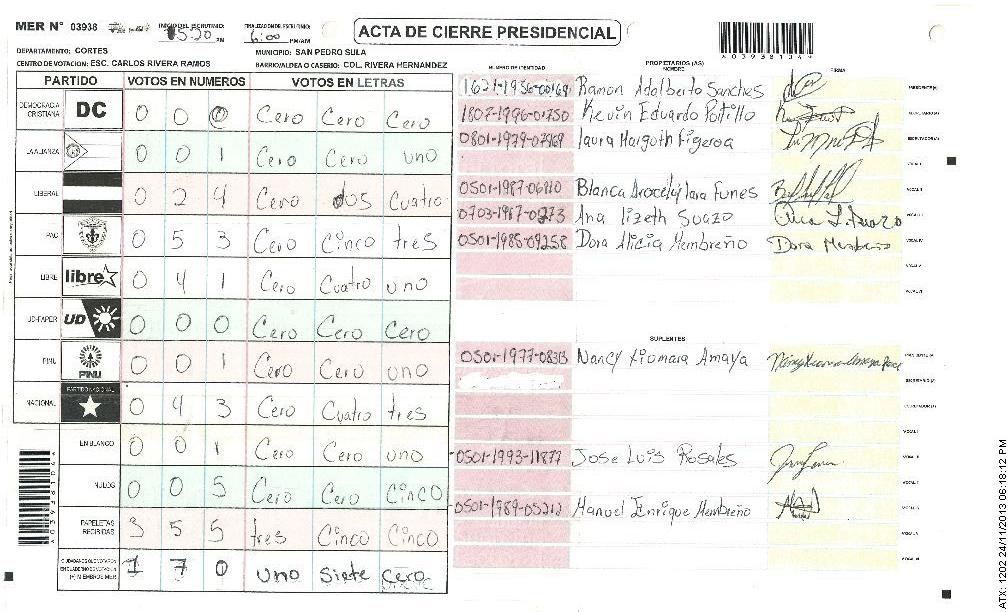 MER N° 03938 INICIO DEL ESCRUTINIO: 5:20 PM FINALIZACION DE ESCRUTINIO: 6:00 PM/AM
ACTA DE CIERRE PRESIDENCIAL
DEPARTAMENTO: CORTES MUNICIPIO: SAN PEDRO SULA
CENTRO DE VOTACION: ESC. CARLOS RIVERA RAMOS BARRIO/ALDEA O CASERIO: COL. RIVERA HERNANDEZ
PARTIDO VOTOS EN NUMEROS VOTOS EN LETRAS
DEMOCRACIA CRISTIANA DC 0 0 0 Cero Cero Cero
LA ALIANZA 0 0 1 Cero Cero uno
LIBERAL 0 2 4 Cero dos Cuatro
PAC 0 5 3 Cero Cinco tres
LIBRE libre 0 4 1 Cero Cuatro uno
UD-FAPER UD 0 0 0 Cero Cero Cero
PINU PINU 0 0 1 Cero Cero uno
NACIONAL PARTIDO NACIONAL 0 4 3 Cero Cuatro tres
EN BLANCO 0 0 1 Cero Cero uno
NULOS 0 0 5 Cero Cero Cinco
PAPELETAS RECIBIDAS 3 5 5 tres Cinco Cinco
CIUDADANOS QUE VOTARON EN CUADERNO DE VOTACION (+) MIEMBROS MER 1 7 0 uno Siete Cero
A039381044
NUMERO DE IDENTIDAD PROPIETARIOS (AS) NOMBRE FIRMA
1621-1956-00169 Ramon Adalberto Sanches PRESIDENTE(A)
1807-1996-01750 Kevin Eduardo Portillo SECRETARIO(A)
0801-1979-07969 Laura Margoth Figeroa ESCRUTADOR(A)
VOCAL I
0501-1987-06810 Blanca Arocely Lara Funes VOCAL II
0703-1987-0273 Ana lizeth Suazo Ana L. Suazo VOCAL III
0501-1985-09258 Dora Alicia Membreño Dora Membreño VOCAL IV
VOCAL V
VOCAL VI
SUPLENTES
0501-1977-08313 Nancy Xiomara Amaya PRESIDENTE(A)
SECRETARIO (A)
ESCRUTADOR(A)
VOCAL I
0501-1993-11877 Jose Luis Rosales VOCAL II
VOCAL III
0501-1989-05212 Manuel Enrique Membreño VOCAL IV
VOCAL V
VOCAL VI
ATX: 1202 24/11/2013 06:18:12 PM